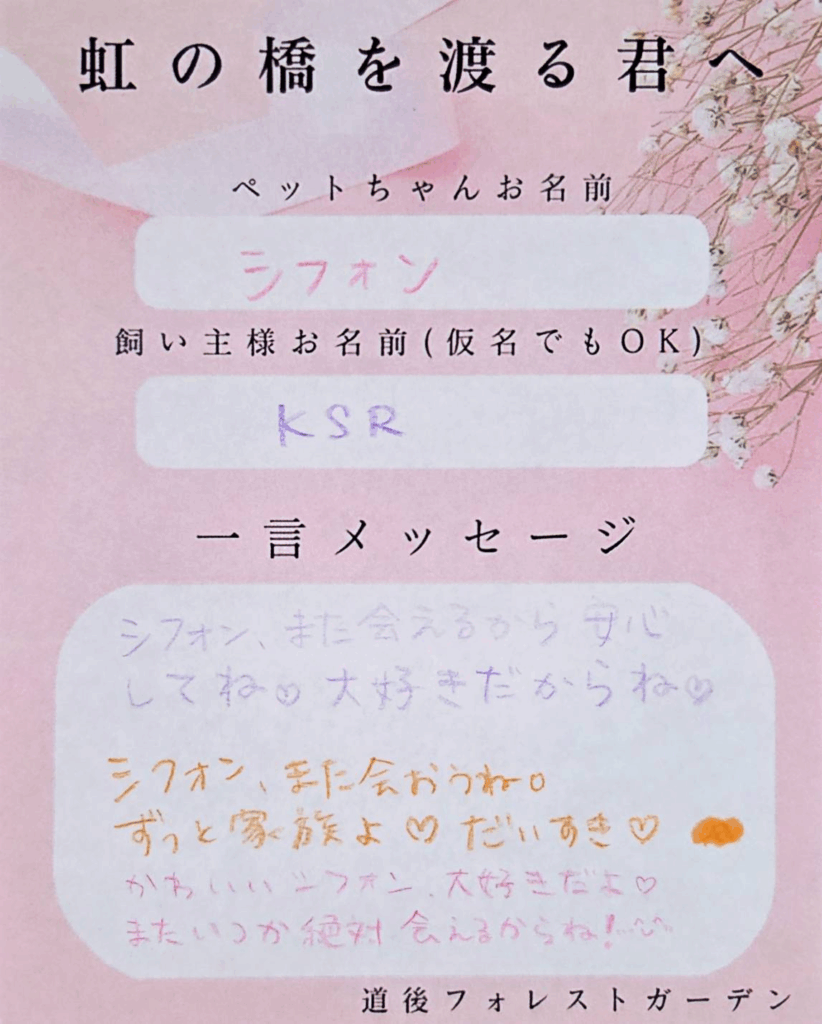 虹の橋を渡る君へ
ペットちゃんお名前
シフォン
飼い主様お名前(仮名でもOK)
KSR
一言メッセージ
シフォン、また会えるから安心
してね♡大好きだからね♡
シフォン、また会おうね。
ずっと家族よ♡だいすき♡
かわいいシフォン、大好きだよ♡
またいつか絶対会えるからね!
道後フォレストガーデン